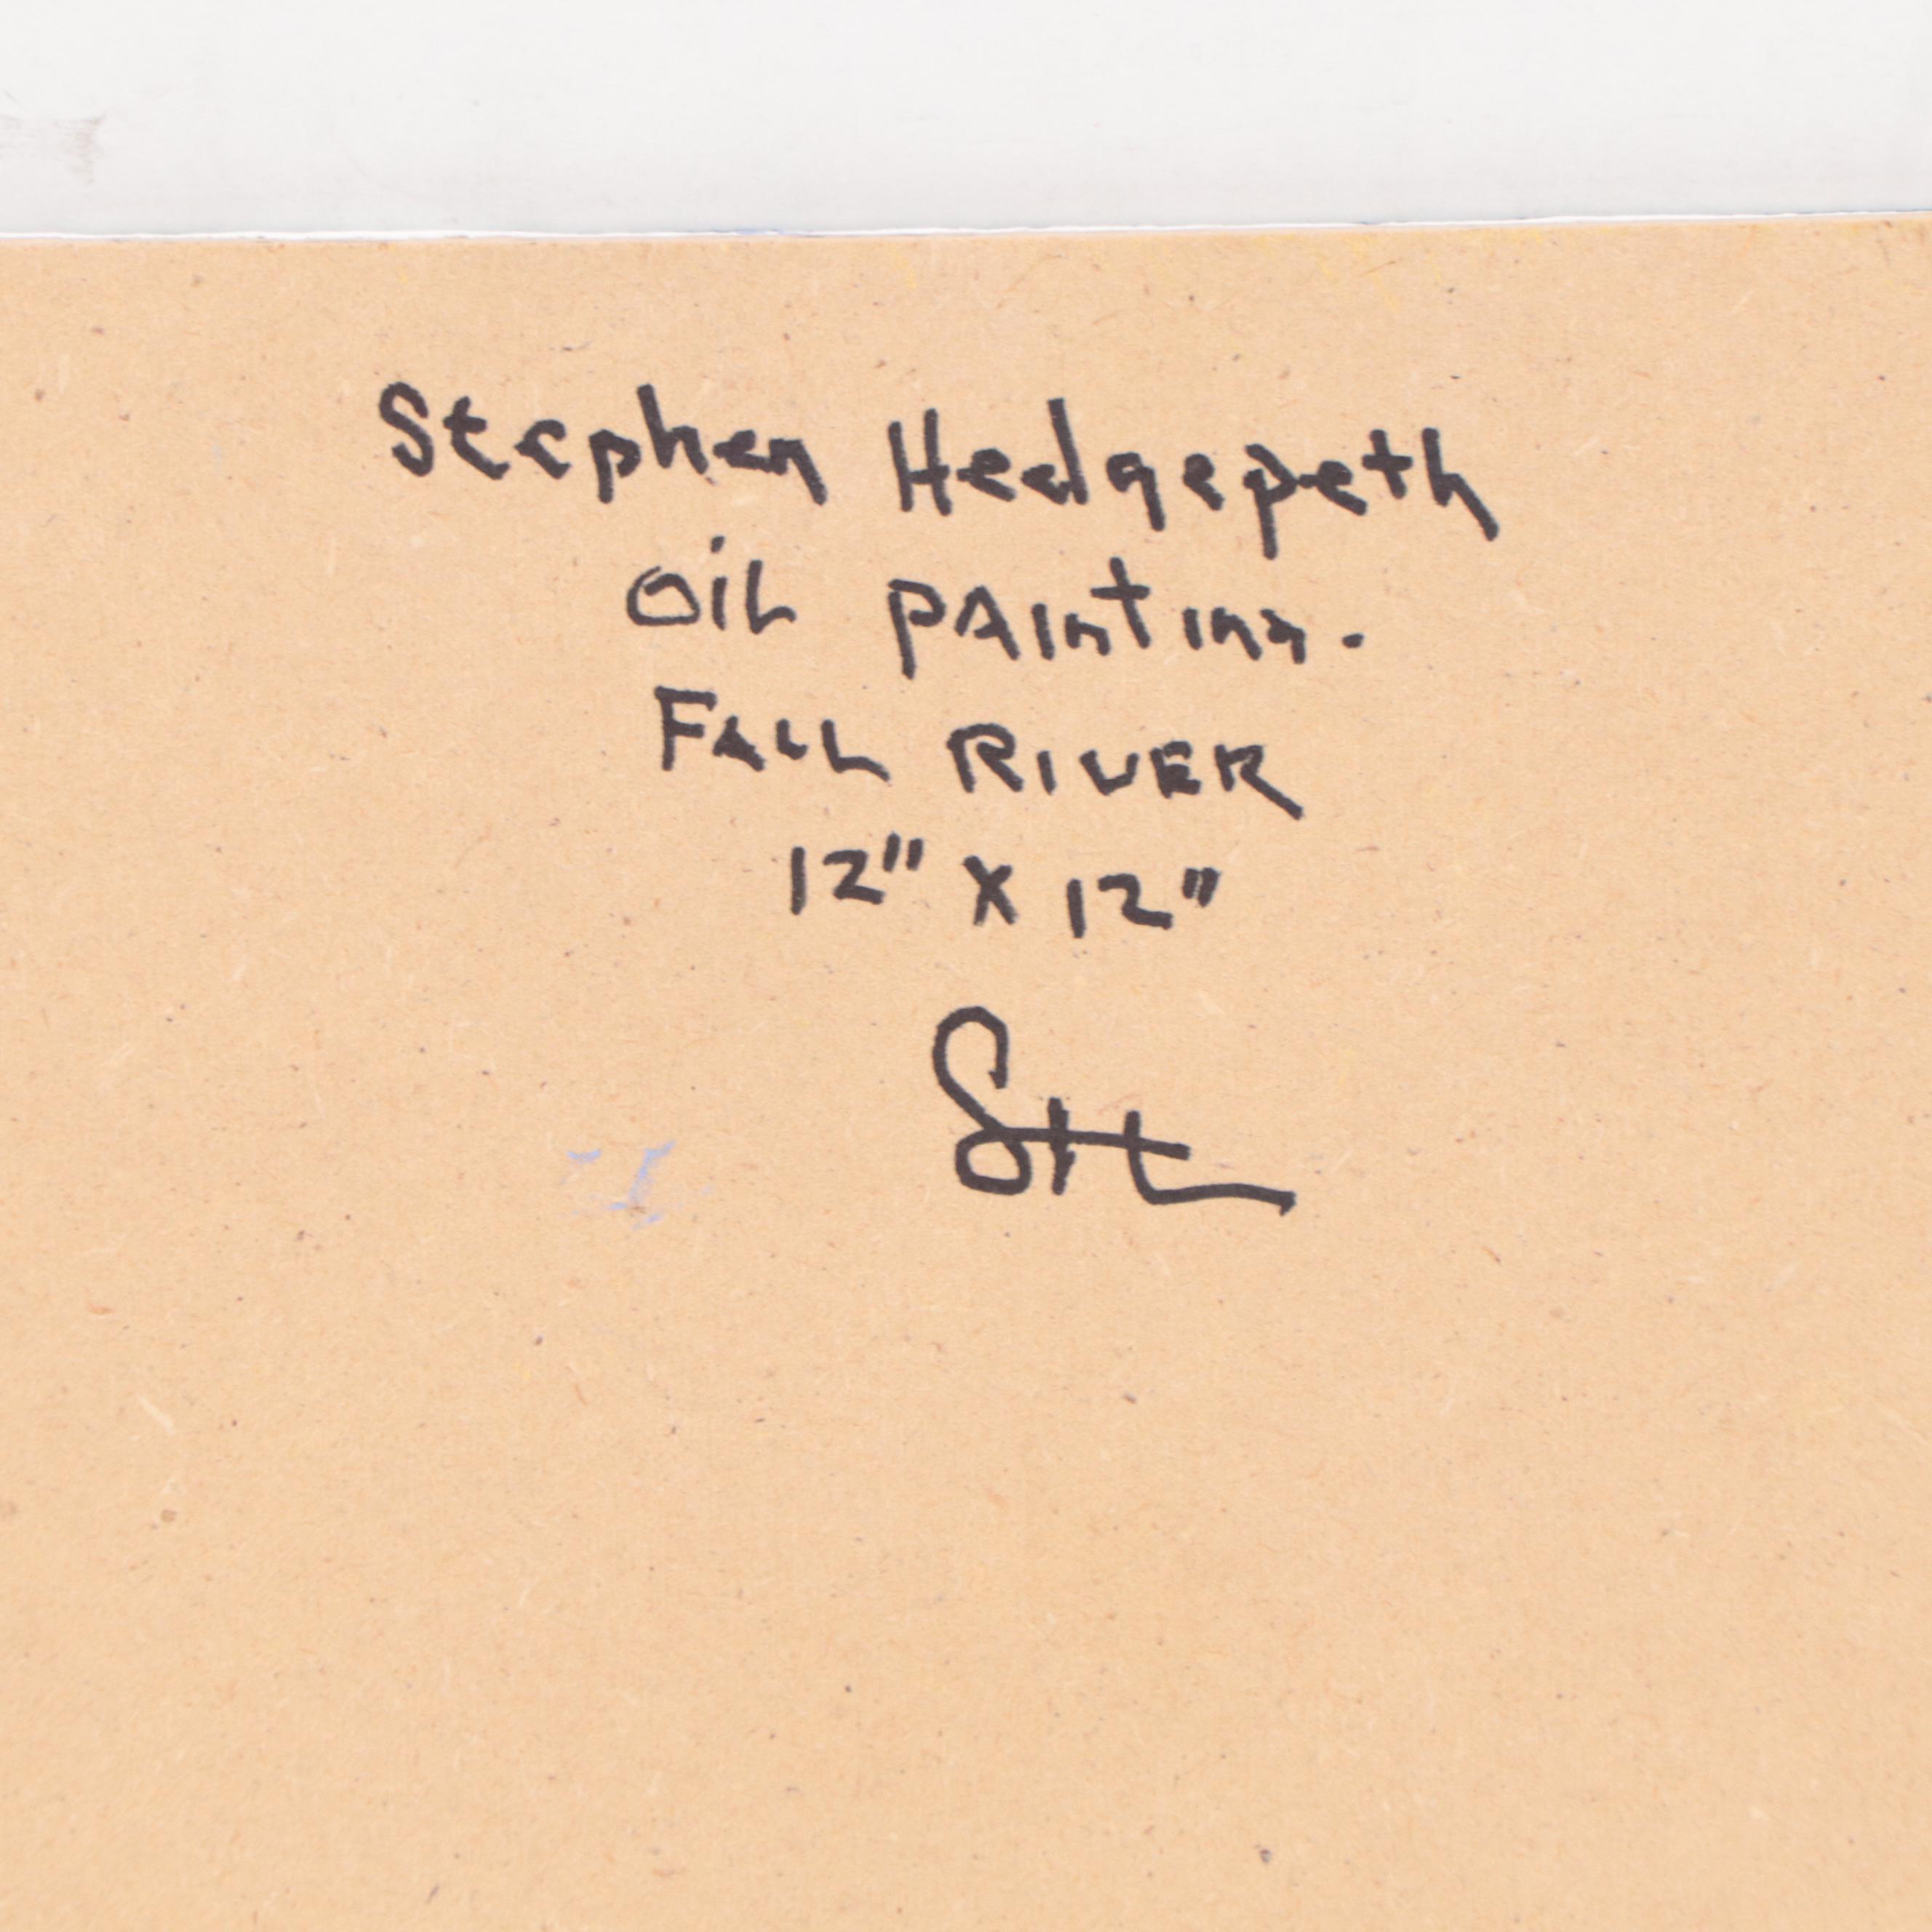 Stephen Hedgepeth
Oil PAInting.
FALL RIVER
12" X 12"
SH